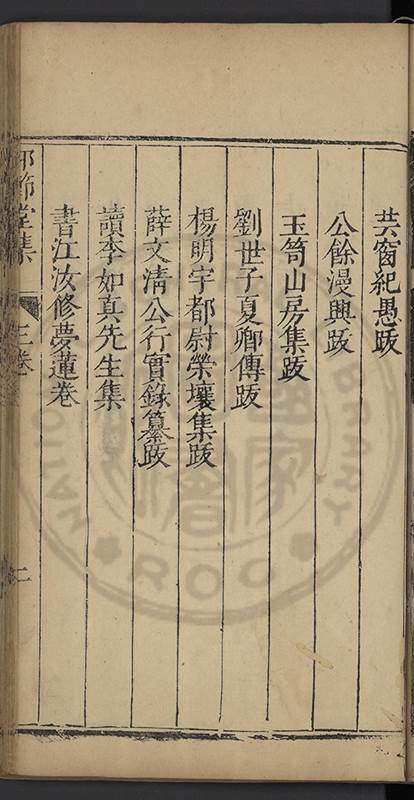 共窗紀愚跋
公餘漫興跋
玉笥山房集跋
劉世子夏卿傳跋
楊明宇都尉榮壤集跋
薛文清公行實錄纂跋
讀李如真先生集
書江汝修夢蓮卷
節堂集 三卷 二